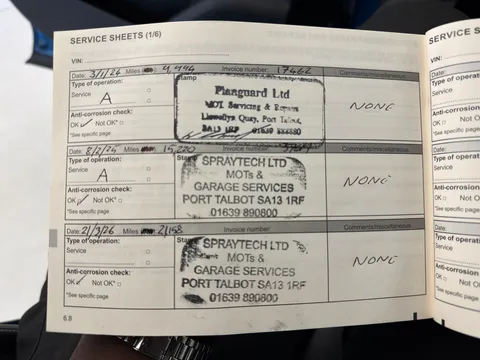 SERVICE SHEETS (1/6)
VIN:
Date: 3/1/24 Miles 9,494 Invoice number: 17462
Type of operation:
Service
A
Anti-corrosion check:
OK ✓ Not OK*
*See specific page
Stamp
Planguard Ltd
MOT Servicing & Repairs
Llewellyn Quay, Port Talbot,
SA13 1RF 01639 888880
Comments/miscellaneous
NONE
Date: 8/2/25 Miles 15,220 Invoice number:
Type of operation:
Service
A
Anti-corrosion check:
OK ✓ Not OK*
*See specific page
SPRAYTECH LTD
MOTs &
GARAGE SERVICES
PORT TALBOT SA13 1RF
01639 890800
Comments/miscellaneous
NONE
Date: 21/3/26 Miles 21,158 Invoice number:
Type of operation:
Service
Anti-corrosion check:
OK ✓ Not OK*
*See specific page
SPRAYTECH LTD
MOTs &
GARAGE SERVICES
PORT TALBOT SA13 1RF
01639 890800
Comments/miscellaneous
NONE
6.8
SERVICE S
VIN:
Date:
Type of operati
Service
Anti-corrosion
OK Not OK
*See specific page
Date:
Type of operat
Service
Anti-corrosion
OK Not OK
*See specific page
Date:
Type of opera
Service
Anti-corrosion
OK Not O
*See specific page